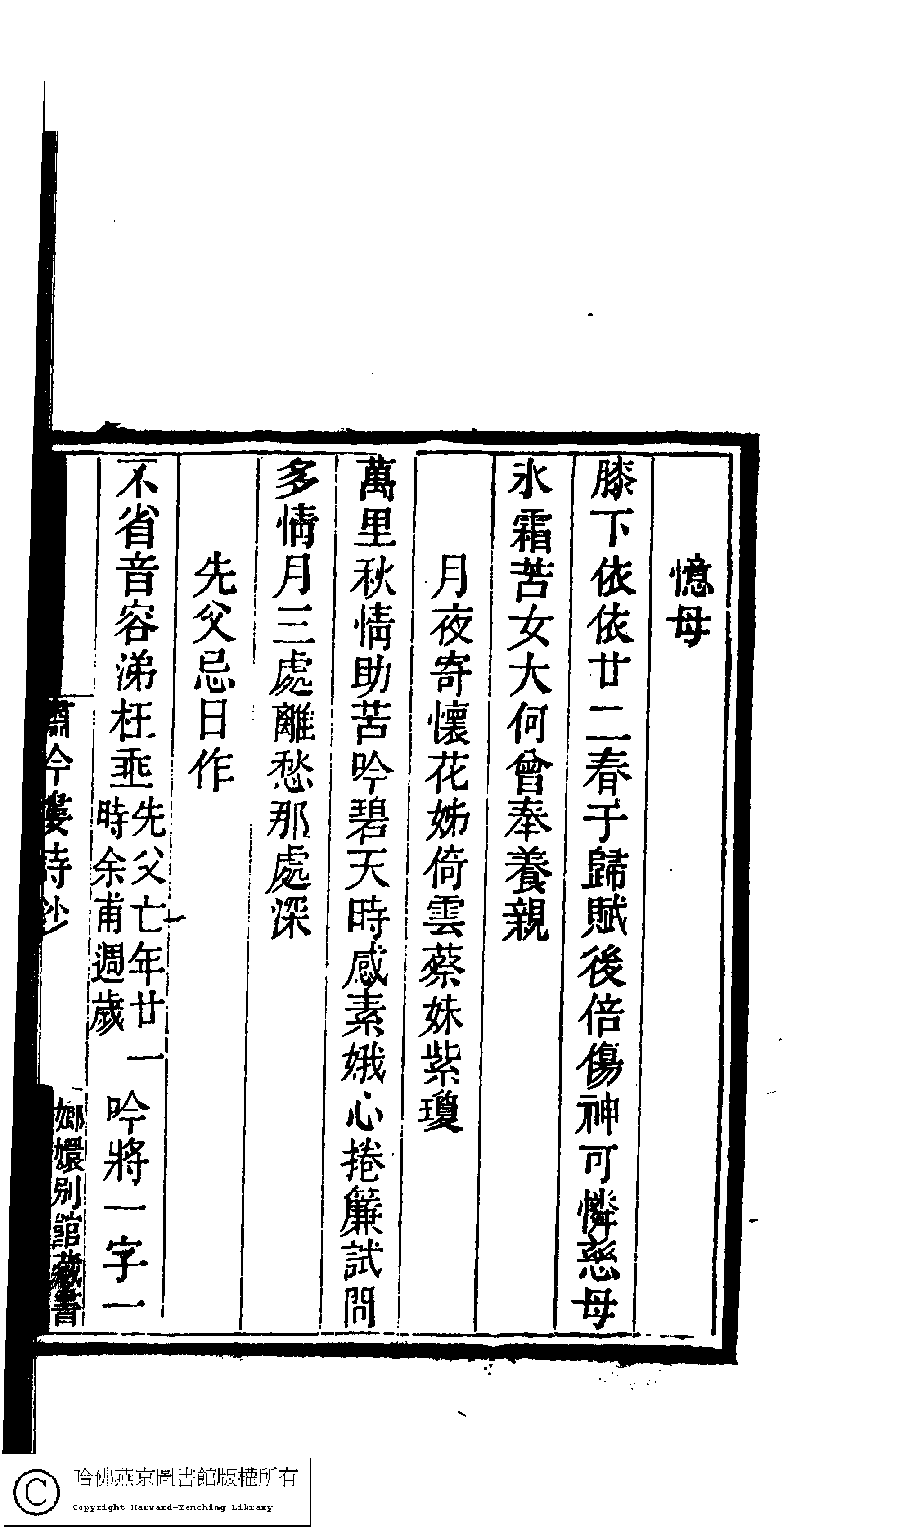 憶母
膝下依依廿二春于歸賦後倍傷神可憐慈母
氷霜苦女大何曾奉養親
月夜寄懷花姊倚雲蔡妹紫瓊
萬里秋情助苦吟碧天時感素娥心捲簾試問
多情月三處離愁那處深
先父忌日作
不省音容涕枉垂先父亡年廿一時余甫週歲吟將一字一
吟詩鈔
嫏嬛別館藏書
哈佛燕京圖書館版權所有
Copyright Harvard-Yenching Library